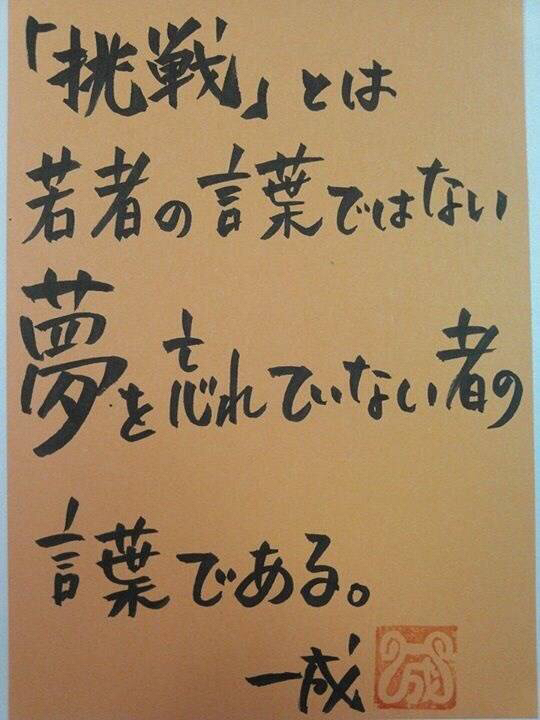 「挑戦」とは
若者の言葉ではない
夢を忘れていない者の
言葉である。
一成